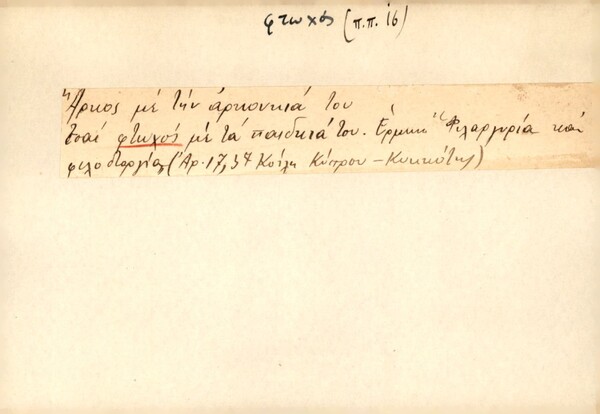 φτωχός (π.π. 16)
Ἄρκος μέ τήν ἀρκοντιά του
τσαί φτωχός μέ τά παιδκιά του. Ἑρμην "Φιλαργυρία καί
φιλοστοργία (Ἀρ. 17, 34 Κοίλη Κύπρου - Κυκκώτης)